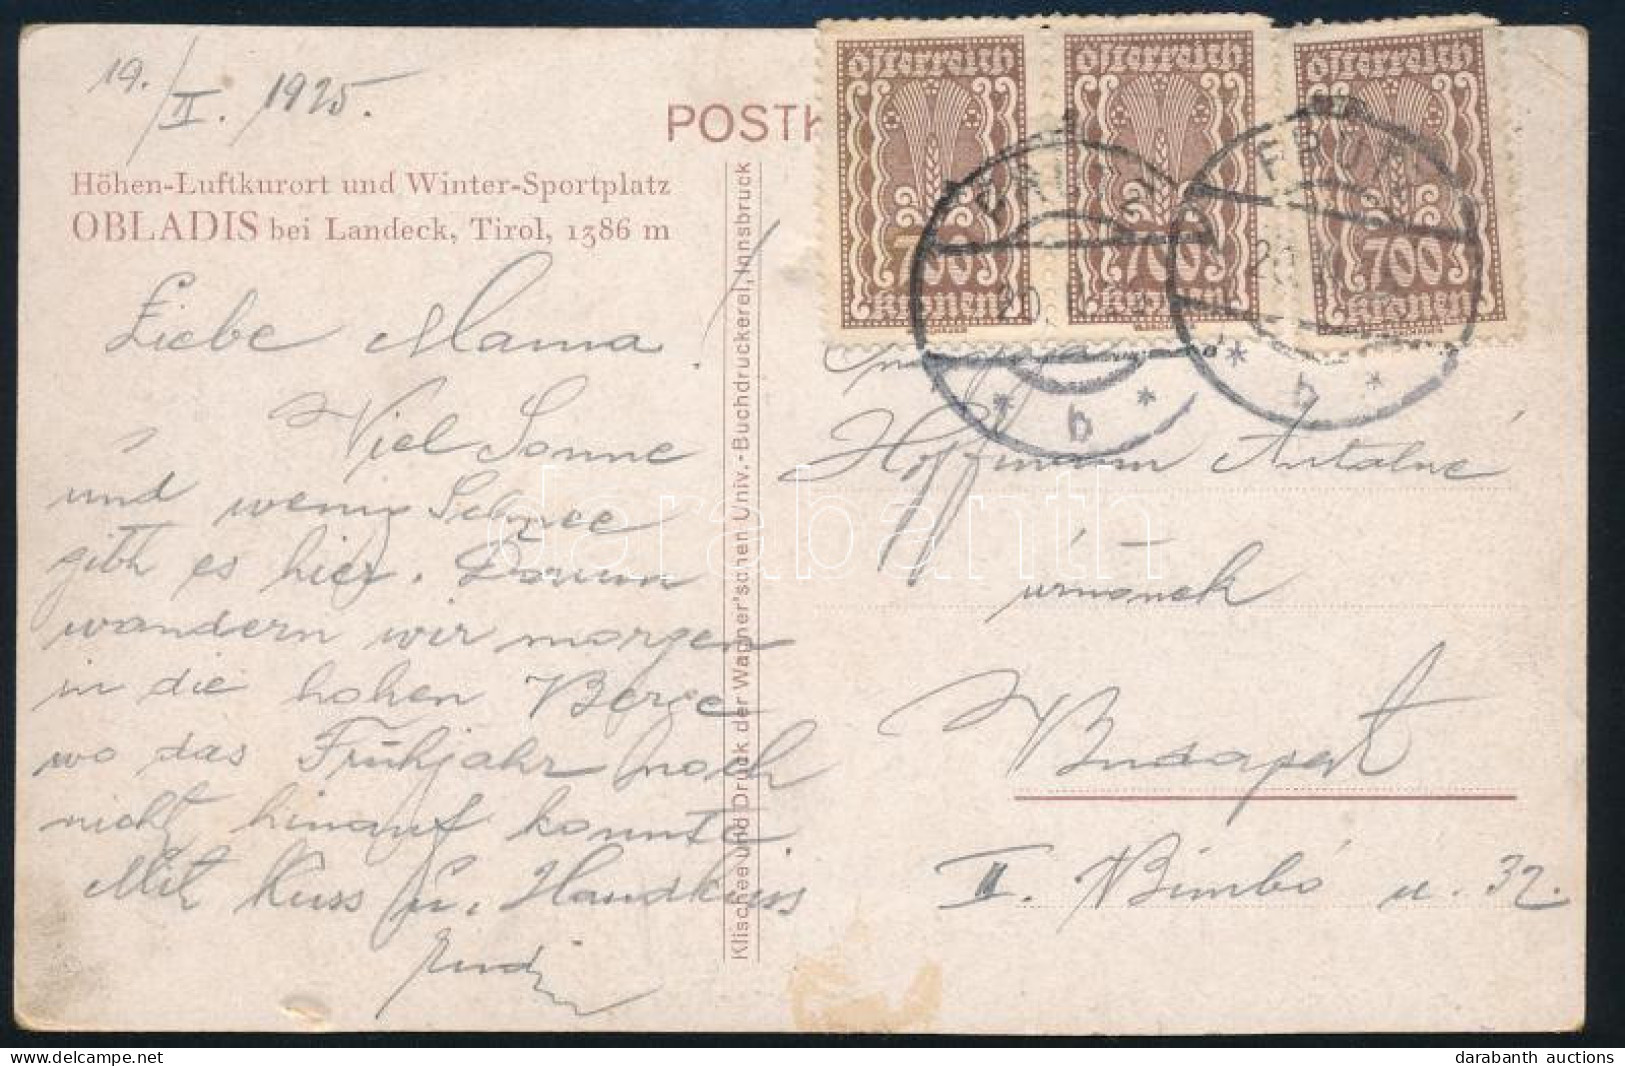 19./II. 1925.
POSTK
Höhen-Luftkurort und Winter-Sportplatz
OBLADIS bei Landeck, Tirol, 1386 m
Liebe Mama!
Viel Sonne
und wenig Schnee
gibt es hier. Darum
wandern wir morgen
in die hohen Berge
wo das Frühjahr noch
nicht hinauf konnte.
Mit Kuss u. Handkuss
Klischee und Druck der Wagner'schen Univ.-Buchdruckerei, Innsbruck
Österreich
700
Kronen
Österreich
700
Kronen
Österreich
700
Kronen
20
* b *
20
* b *
Hoffmann Antalné
úrnőnek
Budapest
II. Bimbó u. 32.
darabanth
darabanth auctions